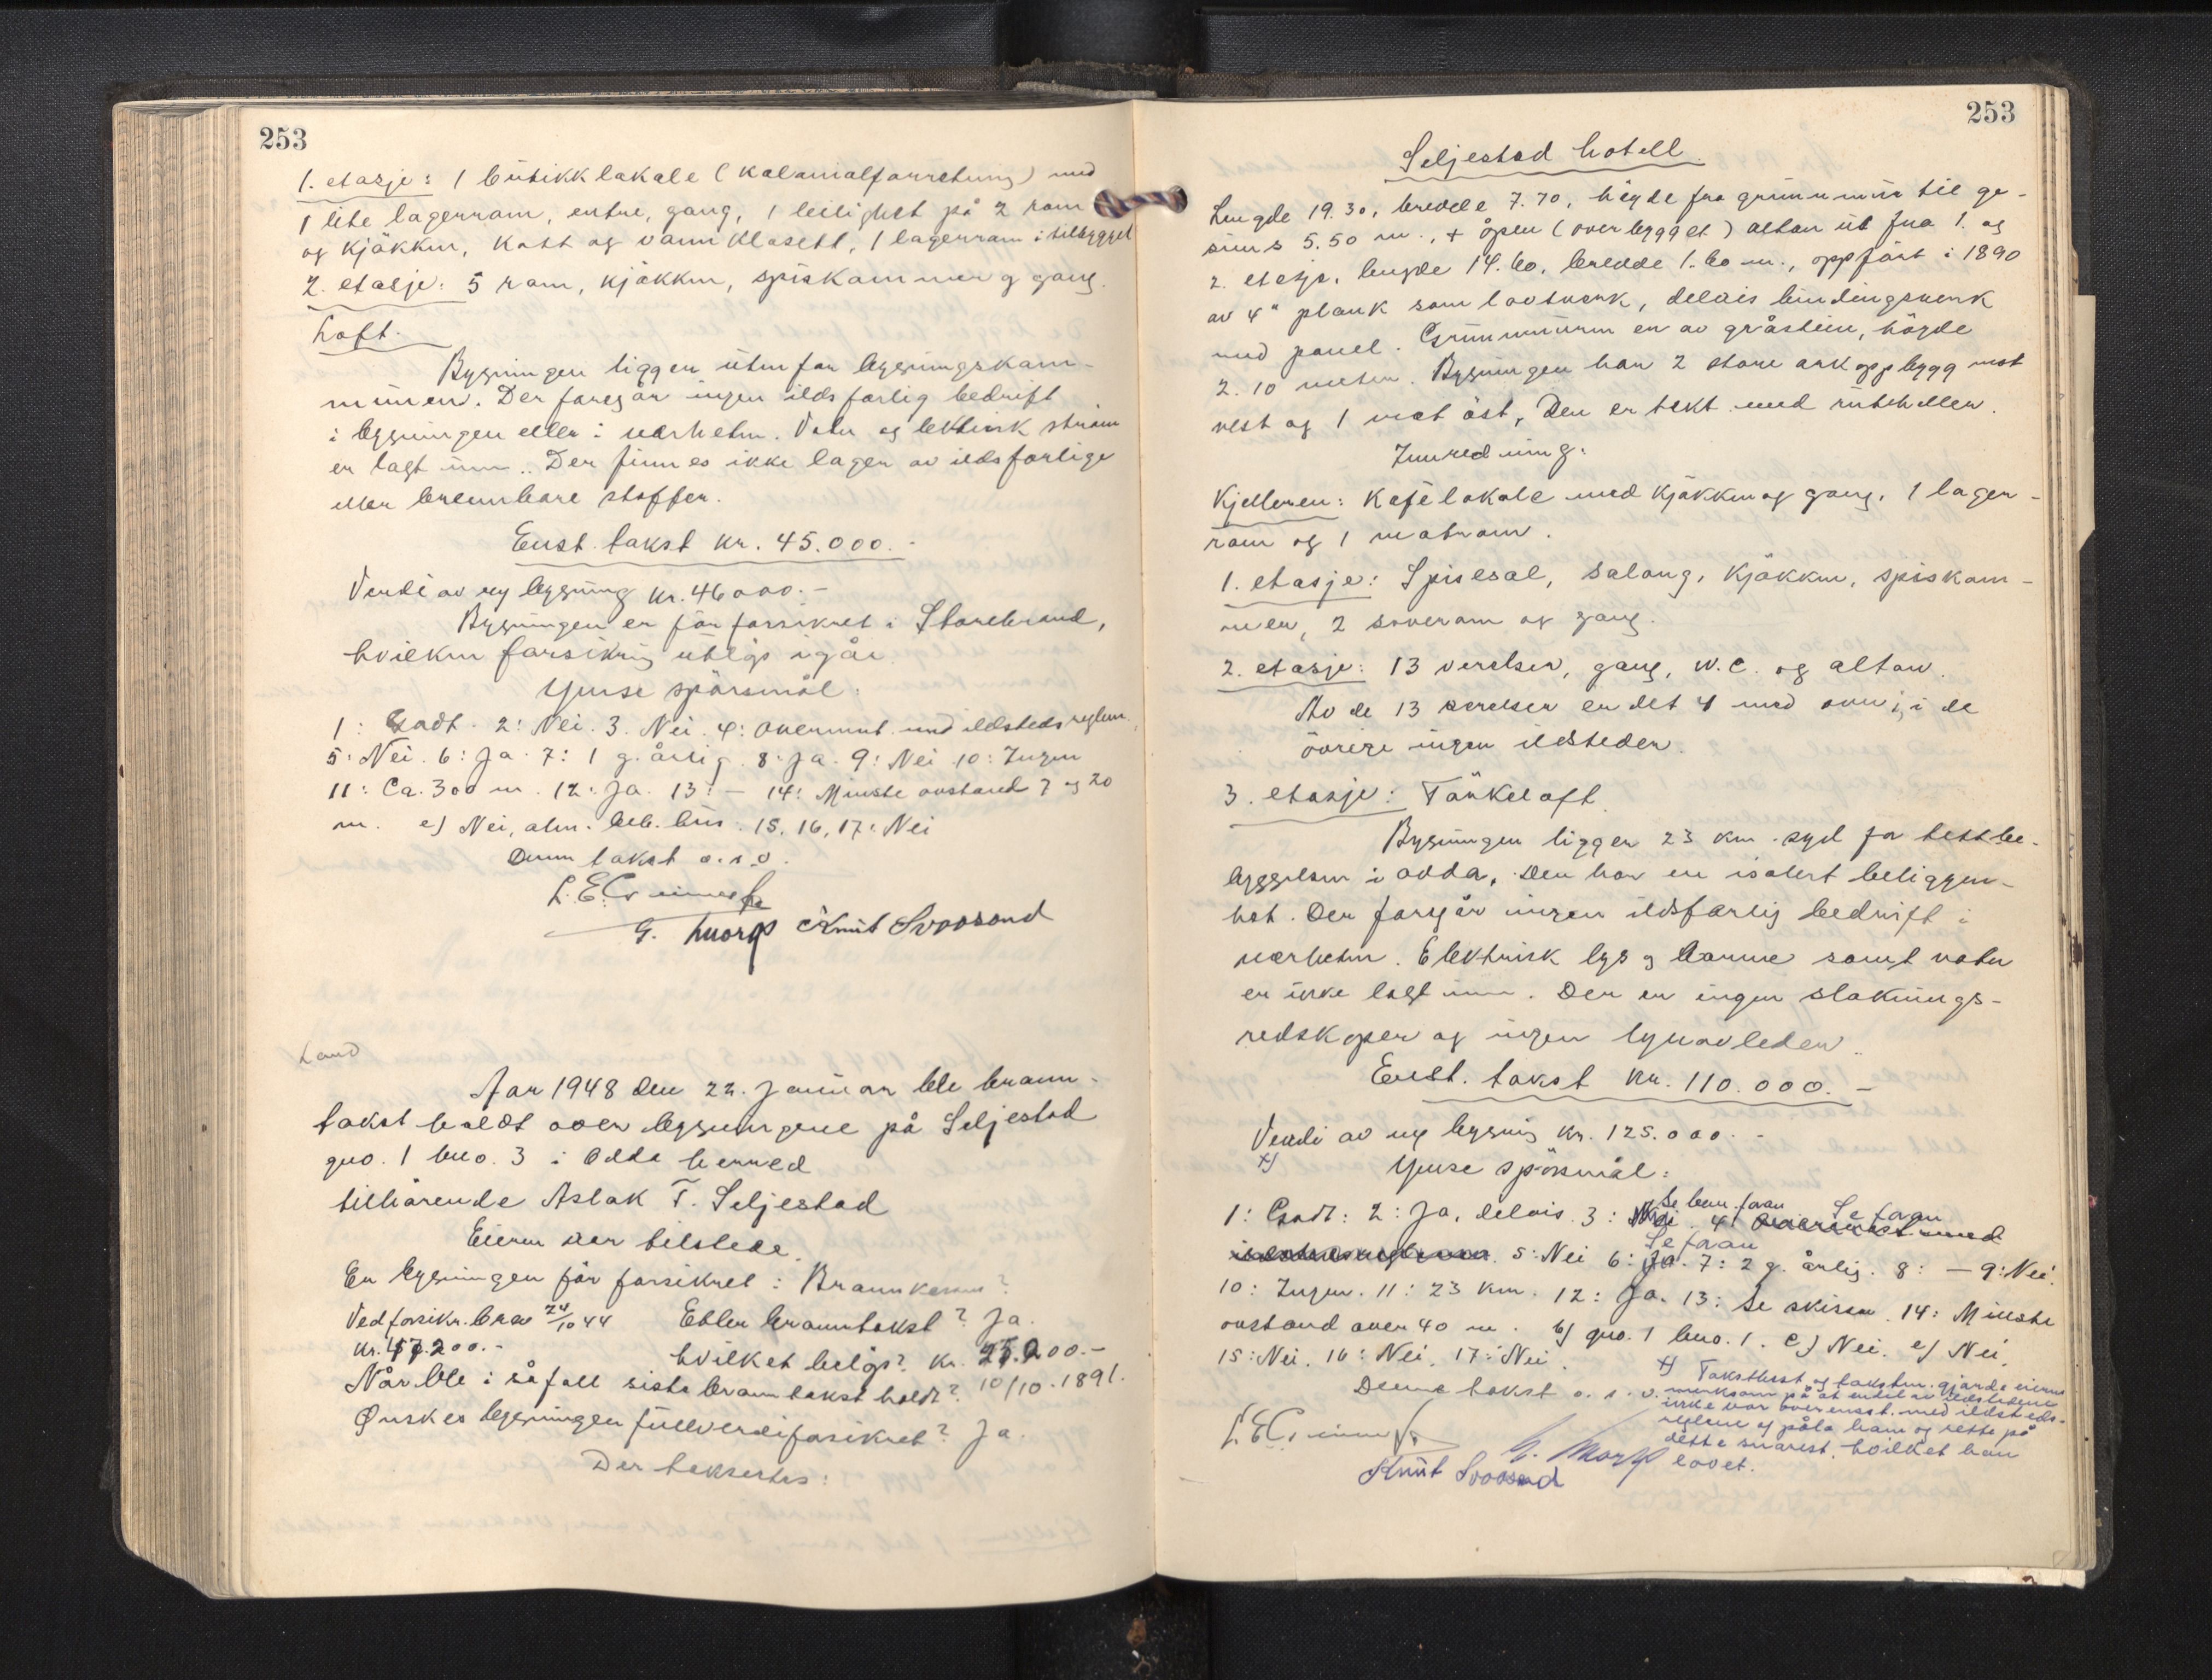 253
1. etasje: 1 butikklokale (kolonialforretning) med
1 lite lagerrom, entre, gang, 1 leilighet på 2 rom
og kjökken, kott og vannklosett, 1 lagerrom i tilbygget
2. etasje: 5 rom, kjökken, spiskammer og gang.
Loft.
Bygningen ligger utenfor bygningskom-
munen. Der foregår ingen ildsfarlig bedrift
i bygningen eller i nærheten. Vatn og lektrisk ström
er lagt inn. Der finnes ikke lager av ildsfarlige
eller brennbare stoffer.
Enst. takst kr. 45.000.-
Verdi av ny bygning kr. 46000.-
Bygningen er för forsikret i Storebrand,
hvilken forsikring utlöp igår.
Ymse spörsmål:
1: Godt. 2: Nei. 3. Nei. 4: Overensst. med ildstedsreglem.
5: Nei. 6: Ja. 7: 1 g. årlig. 8: Ja. 9: Nei. 10: Ingen
11: Ca. 300 m. 12: Ja. 13: - 14: Minste avstand 7 og 20
m. e) Nei, alm. beb. hus. 15, 16, 17: Nei
Denne takst o.s.v.
G. Morp Knut Svoosand
Land
Aar 1948 den 22. januar ble brann-
takst holdt over bygningene på Seljestad
gno. 1 bno. 3 i Odda herred
tilhörende Aslak T. Seljestad
Eieren var tilstede.
Er bygningen för forsikret: Brannkassen?
Ved forsikr.brev 24/10 44 Etter branntakst? Ja.
kr. 47.200.- hvilket belöp? kr. 25.200.-
Når ble i såfall siste branntakst holdt? 10/10.1891.
Ønskes bygningen fullverdiforsikret? Ja.
Der taksertes:
253
Seljestad hotell
Lengde 19.30, bredde 7.70, höyde fra grunnmur til ge-
sims 5.50 m., + åpen (overbygget) altan ut fra 1. og
2. etasje, lengde 14.60, bredde 1.60 m., oppfört i 1890
av 4" plank som laftverk, delvis bindingsverk
med panel. Grunnmuren er av gråstein, höyde
2.10 meter. Bygningen har 2 store arkoppbygg mot
vest og 1 mot öst, Den er tekt med ruteheller.
Innredning:
Kjelleren: Kafelokale med kjökken og gang, 1 lager-
rom og 1 matrom.
1. etasje: Spisesal, salong, kjökken, spiskam-
mer, 2 soverom og gang.
2. etasje: 13 værelser, gang, W.C. og altan.
Av de 13 værelser er det 4 med ovn i, i de
övrige ingen ildsteder.
3. etasje: Törkeloft
Bygningen ligger 23 km. syd for tettbe-
byggelsen i Odda. Den har en isolert beliggen-
het. Der foregår ingen ildsfarlig bedrift i
nærheten. Elektrisk lys og varme samt vatn
er ikke lagt inn. Der er ingen sloknings-
redskaper og ingen lynavleder.
Enst. takst kr. 110.000.-
Verdi av ny bygning kr. 125.000.-
+) Ymse spörsmål:
1: Godt: 2: Ja, delvis. 3: Se bem. foran 4: Se foran
5: Nei 6: Se foran 7: 2 g. årlig. 8: - 9: Nei.
10: Ingen. 11: 23 km. 12: Ja. 13: Se skisse. 14: Minste
avstand over 40 m. b) gno. 1 bno. 1. c) Nei. e) Nei.
15: Nei. 16: Nei. 17: Nei.
Denne takst o. s. v.
+) Takstbest. og takstm. gjorde eieren
merksam på at endel av ildstedene
ikke var overensst. med ildsteds-
reglem. og påla ham og rette på
dette snarest, hvilket han
lovet.
G. Morp
Knut Svoosand